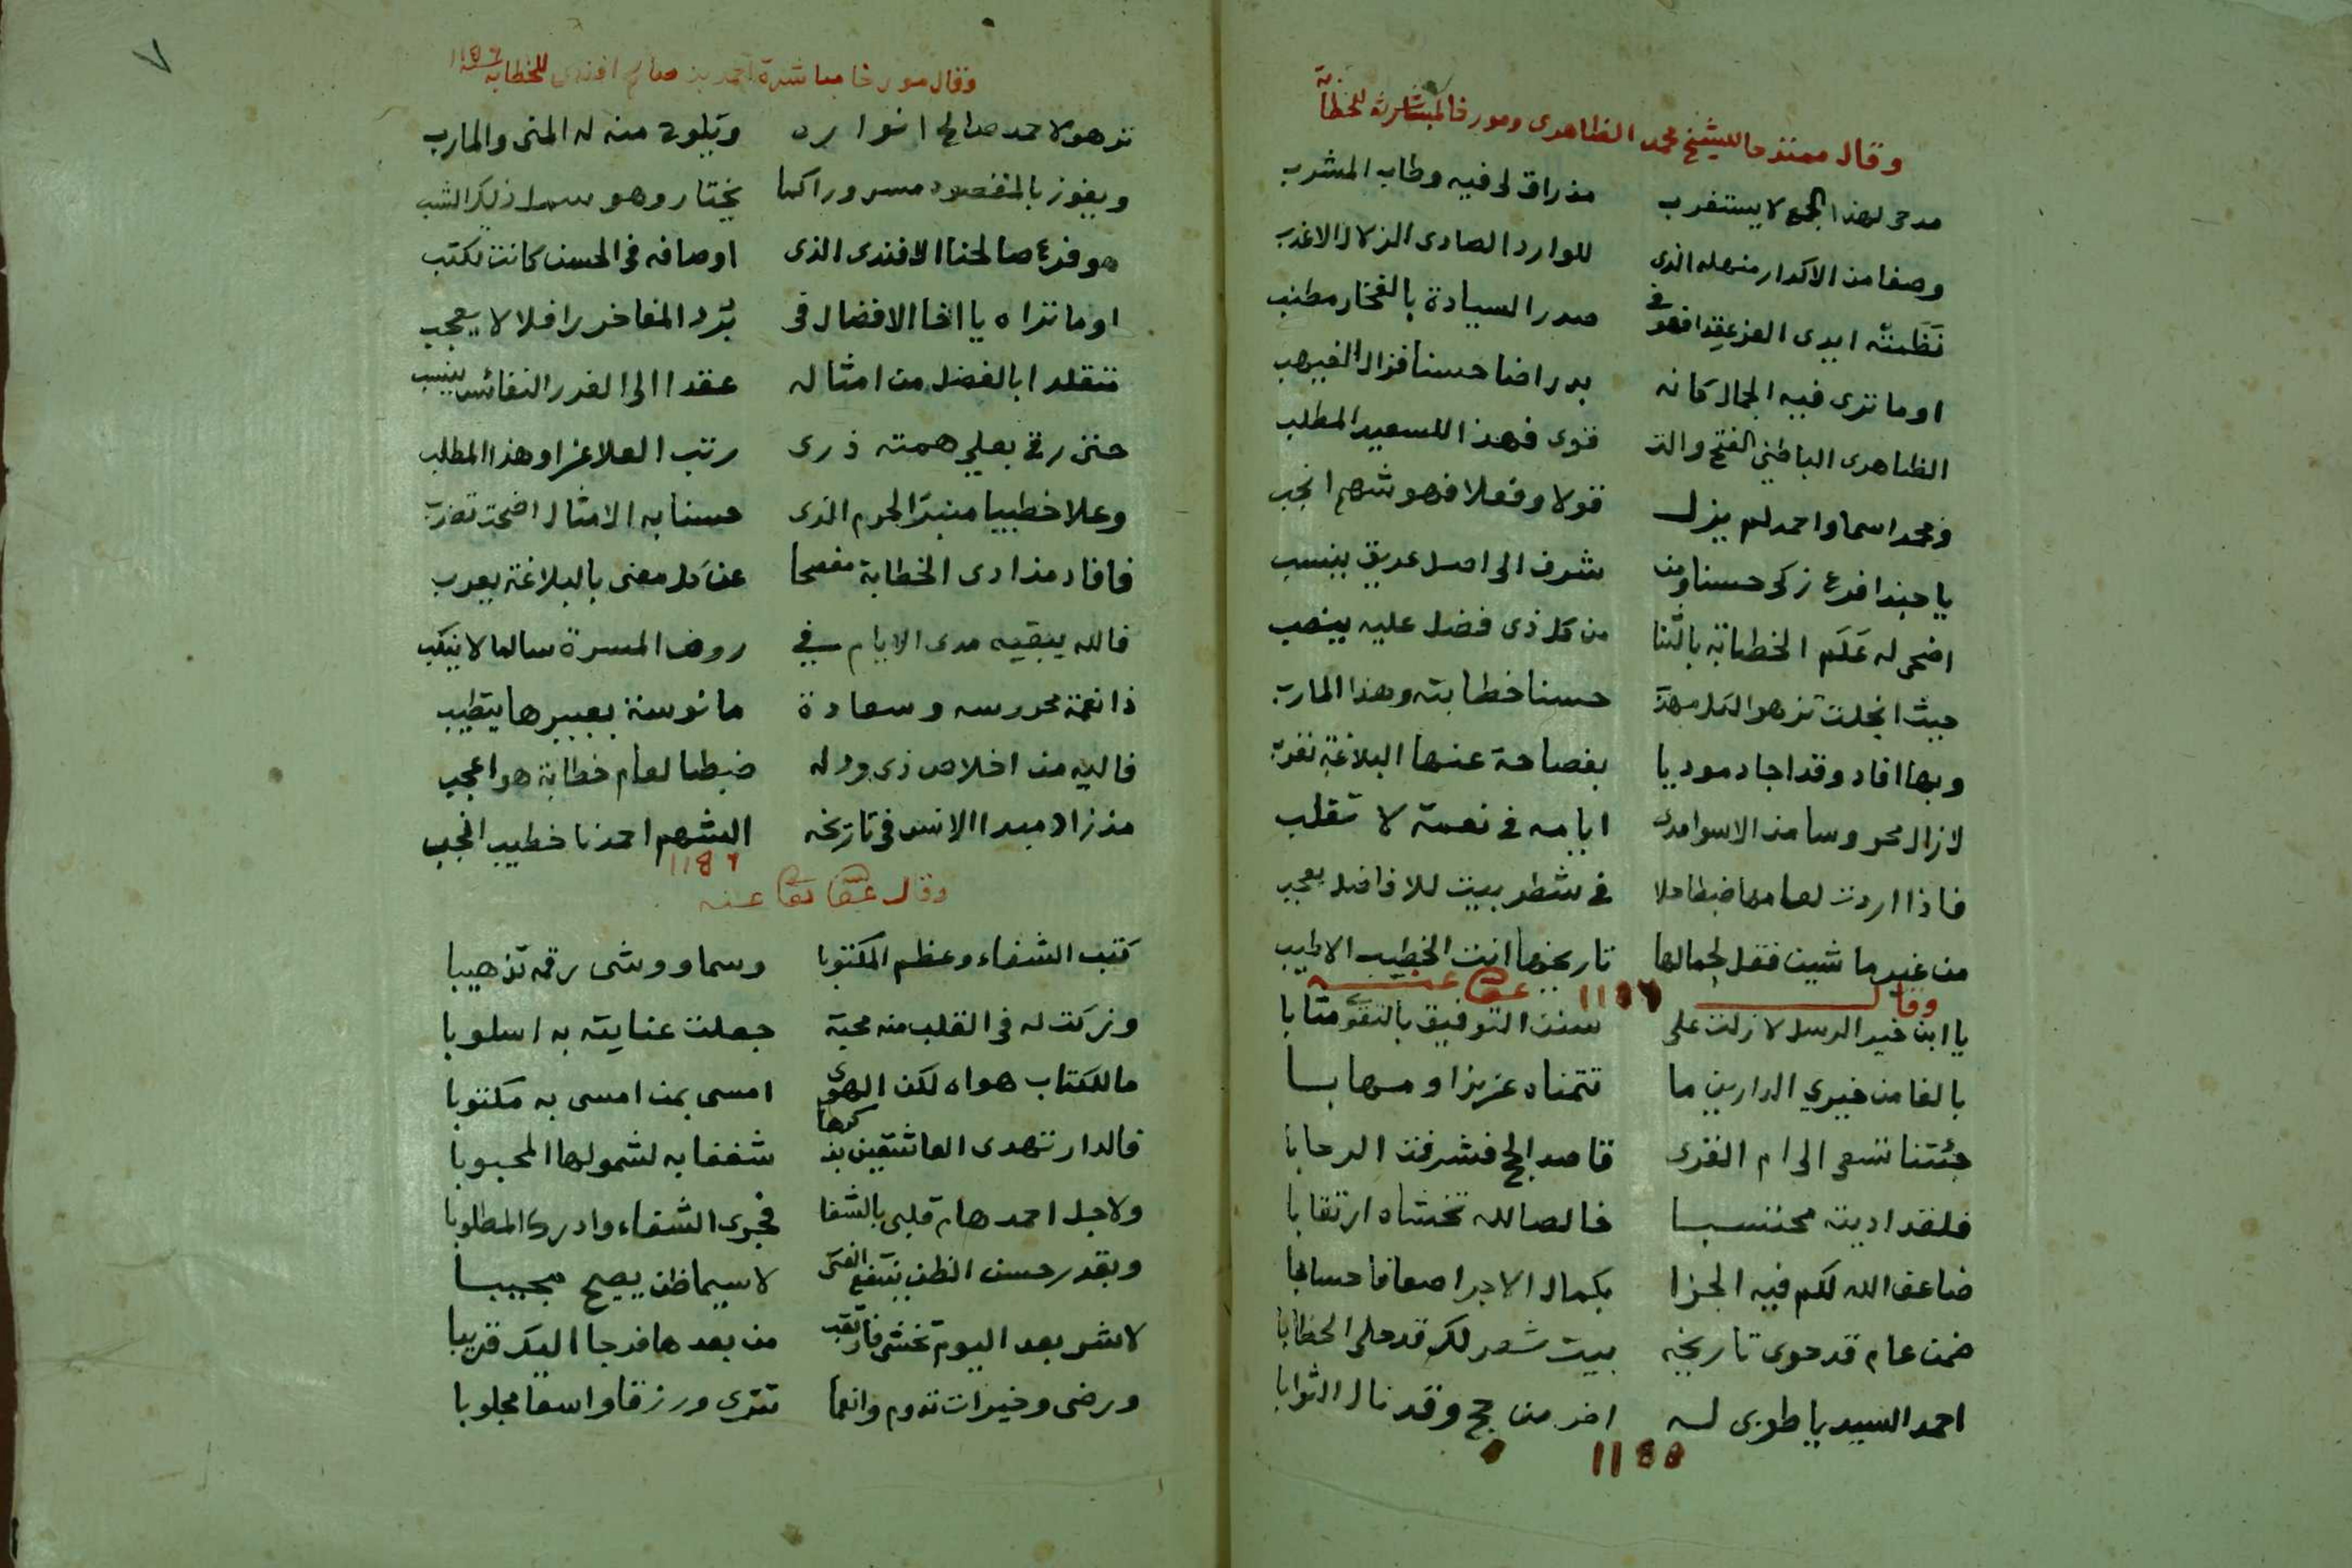 وقال ممتدحا للشيخ محمد الظاهرى ومورخا لمباشرته للخطابة
مدحى لهذا الجمع لا يستغرب مذ راق لى فيه وطاب المشرب
وصفا من الاكدار منهله الذى للوارد الصادى الزلال الاعذب
نَظَمَتْه ايدى العز عقدا فهو فى صدر السيادة بالفخار مطنب
اوما ترى فيه الجمال كانه بدر اضا حسنا فزال الغيهب
الظاهرى الباطنى الفتح والتـ ـقوى فهذا السعيد المطلب
فمحمد اسما واحمد لم يزل قولا وفعلا فهو شهم انجب
يا حبذا فرع زكى حسنا ومن شرف الى اصل عريق ينسب
اضحى له عَلَم الخطابة بالثنا من كل ذى فضل عليه ينصب
حيث انجلت تزهو لكل حسنا خطابته وهذا المارب
وبها افاد وقد اجاد موديا بفصاحة عنها البلاغة تعرب
لا زال محروسا من الاسوا مدى ايامه فى نعمة لا تقلب
فاذا اردت لعامها ضبطا حلا فى شطر بيت للافاضل يعجب
من غير ما شين فقل لجمالها تاريخها انت الخطيب الاطيب
وقال عفى عنه ١١٨٦
يا ابن خير الرسل لا زلت على سنن التوفيق بالتقوى مثابا
بالغا من خيري الدارين ما تتمناه عزيزا ومهابا
جئتنا تسعى الى ام القرى قاصد الحج فشرفت الرحابا
فلقد اديته محتسبا خالصا لله تخشاه ارتقابا
ضاعف الله لكم فيه الجزا بكمال الاجر اضعافا حسابا
ضمن عام قد حوى تاريخه بيت شعر لك قد حلى الخطابا
احمد السيد يا طوبى له اخر من حج وقد نال الثوابا
١١٨٥
٧
وقال مورخا مباشرة احمد بن صالح افندى للخطابة سنة ١١٨٦
تزهو لاحمد صالح انواره ويلوح منه له المنى والمارب
ويفوز بالمقصود مسرورا كما يختار وهو
هو فرع صالحنا الافندى الذى اوصافه فى الحسن كانت تكتب
اوما تراه يا اخا الافضال فى بُرد المفاخر رافلا لا يعجب
متقلدا بالفضل من امثاله عقدا الى الغرر النفائس ينسب
حتى رقى بعلي همته ذرى رتب العلا عزا وهذا المطلب
وعلا خطيبا منبر الحرم الذى حسنا به الامثال اضحت تضرب
فافاد مذ ادى الخطابة مفصحا عن كل معنى بالبلاغة يعرب
فالله يبقيه مدى الايام في روض المسرة سالما لا ينكب
ذا نعمة محروسه وسعادة مانوسة بعبيرها يتطيب
فاليه من اخلاص ذى ود له ضبطا لعام خطابة هو اعجب
مذ زاد مبدا الانس فى تاريخه الشهم احمدنا خطيب انجب
١١٨٦
وقال عفى عنه
كتب الشفاء وعظم المكتوبا وسما ووشى رقمه تذهيبا
وزكت له فى القلب منه محبة جعلت عنايته به اسلوبا
ما للكتاب هواه لكن الهوى امسى بمن امسى به مكتوبا
فالدار تهدى العاشقين بذكرها شغفا به لشمولها المحبوبا
ولاجل احمد هام قلبى بالشفا فحوى الشفاء وادرك المطلوبا
وبقدر حسن الظن ينتفع الفتى لا سيما ظن يصيح مجيبا
لا شر بعد اليوم تخشى فارتقب من بعدها فرجا اليك قريبا
ورضى وخيرات تدوم وانعما تترى ورزقا واسعا مجلوبا